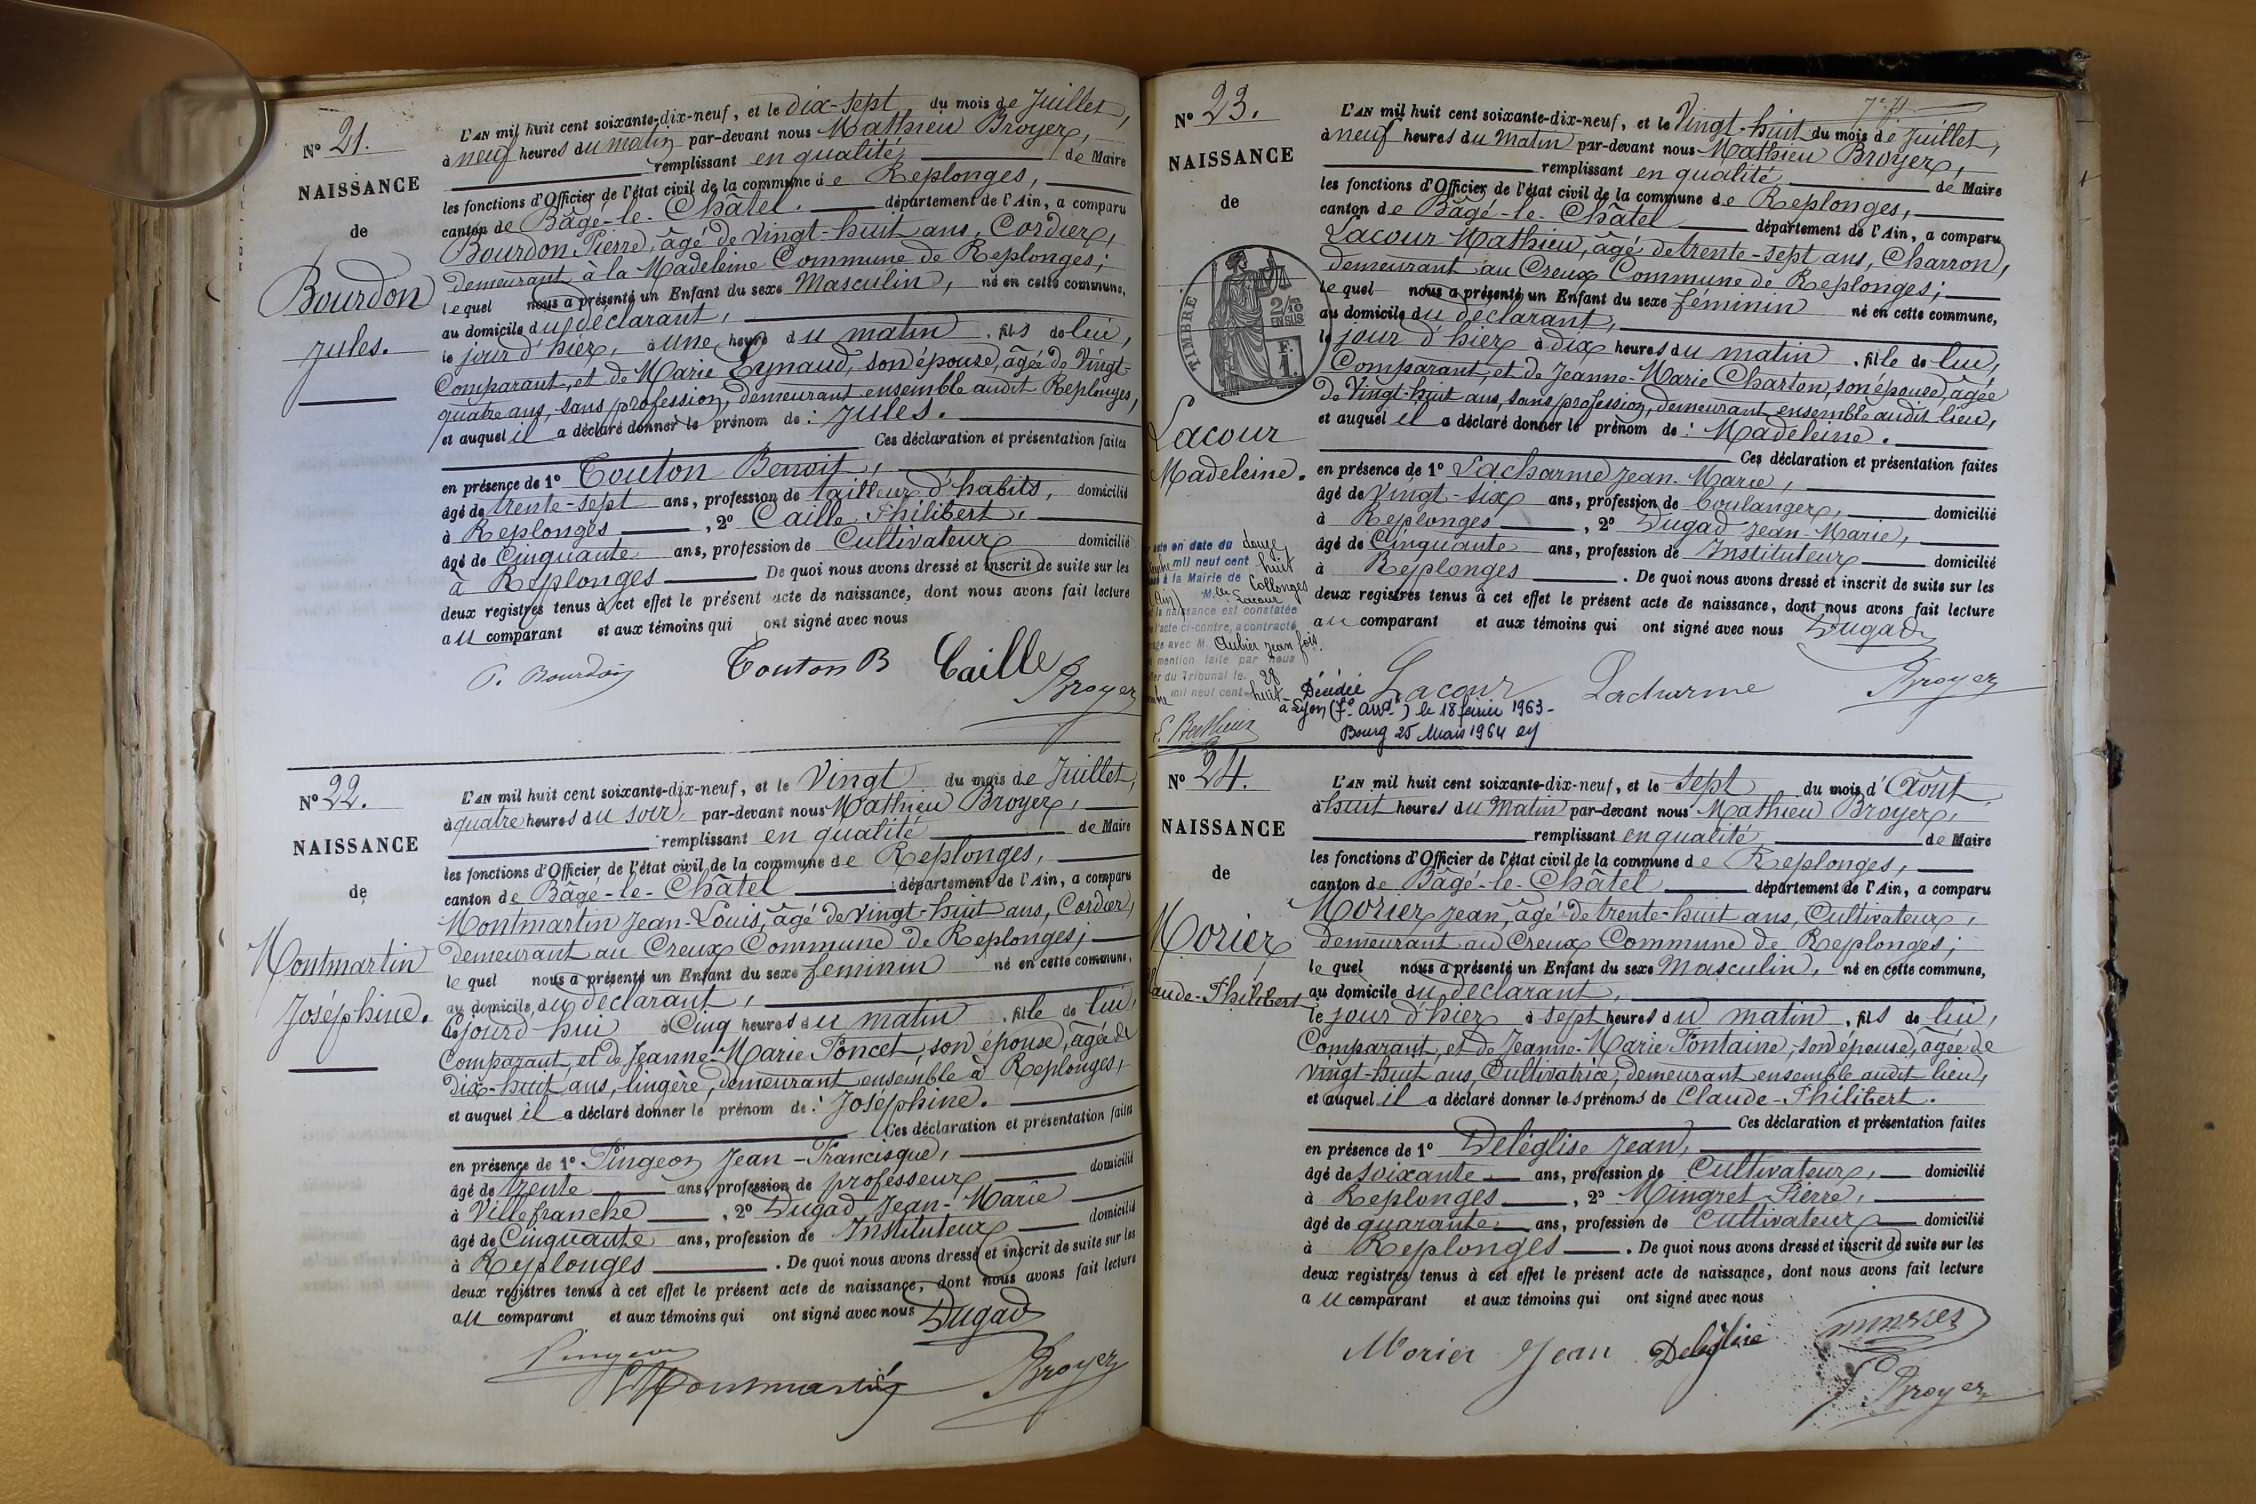 N° 21.
NAISSANCE
de
Bourdon
Jules.
L'AN mil huit cent soixante-dix-neuf, et le dix-sept du mois de Juillet,
à neuf heures du matin par-devant nous Mathieu Broyer,
remplissant en qualité de Maire
les fonctions d'Officier de l'état civil de la commune de Replonges,
canton de Bâgé-le-Châtel, département de l'Ain, a comparu
Bourdon Pierre, âgé de vingt-huit ans, Cordier,
demeurant à la Madeleine Commune de Replonges;
lequel nous a présenté un Enfant du sexe Masculin, né en cette commune,
au domicile du déclarant,
le jour d'hier, à une heure du matin, fils de lui,
Comparant, et de Marie Eynaud, son épouse, âgée de Vingt-
quatre ans, sans profession, demeurant ensemble audit Replonges,
et auquel il a déclaré donner le prénom de: Jules.
Ces déclaration et présentation faites
en présence de 1° Touton Benoit,
âgé de trente-sept ans, profession de tailleur d'habits, domicilié
à Replonges, 2° Caille Philibert,
âgé de Cinquante ans, profession de Cultivateur domicilié
à Replonges De quoi nous avons dressé et inscrit de suite sur les
deux registres tenus à cet effet le présent acte de naissance, dont nous avons fait lecture
au comparant et aux témoins qui ont signé avec nous
P. Bourdon Touton B Caille
Broyer
N° 22.
NAISSANCE
de
Montmartin
Joséphine.
L'AN mil huit cent soixante-dix-neuf, et le Vingt du mois de Juillet,
à quatre heures du soir, par-devant nous Mathieu Broyer,
remplissant en qualité de Maire
les fonctions d'Officier de l'état civil de la commune de Replonges,
canton de Bâgé-le-Châtel département de l'Ain, a comparu
Montmartin Jean-Louis, âgé de vingt-huit ans, Cordier,
demeurant au Creux Commune de Replonges;
lequel nous a présenté un Enfant du sexe féminin né en cette commune,
au domicile du déclarant,
le jourd'hui à Cinq heures du matin, fille de lui,
Comparant, et de Jeanne-Marie Poncet, son épouse, âgée de
dix-huit ans, lingère, demeurant ensemble à Replonges,
et auquel il a déclaré donner le prénom de: Joséphine.
Ces déclaration et présentation faites
en présence de 1° Pingeon Jean-Francisque,
âgé de trente ans, profession de professeur, domicilié
à Villefranche, 2° Dugad Jean-Marie
âgé de Cinquante ans, profession de Instituteur domicilié
à Replonges. De quoi nous avons dressé et inscrit de suite sur les
deux registres tenus à cet effet le présent acte de naissance, dont nous avons fait lecture
au comparant et aux témoins qui ont signé avec nous Dugad
Pingeon
Montmartin Broyer
N° 23.
NAISSANCE
de
TIMBRE
2/10
EN SUS
F.
1.
Lacour
Madeleine.
L'AN mil huit cent soixante-dix-neuf, et le Vingt-huit du mois de Juillet,
à neuf heures du matin par-devant nous Mathieu Broyer,
remplissant en qualité de Maire
les fonctions d'Officier de l'état civil de la commune de Replonges,
canton de Bâgé-le-Châtel département de l'Ain, a comparu
Lacour Mathieu, âgé de trente-sept ans, Charron,
demeurant au Creux Commune de Replonges;
lequel nous a présenté un Enfant du sexe féminin né en cette commune,
au domicile du déclarant,
le jour d'hier à dix heures du matin, fille de lui,
Comparant, et de Jeanne-Marie Charton, son épouse, âgée
de Vingt-huit ans, sans profession, demeurant ensemble audit lieu,
et auquel il a déclaré donner le prénom de: Madeleine.
Ces déclaration et présentation faites
en présence de 1° Lacharme Jean-Marie,
âgé de Vingt-six ans, profession de boulanger, domicilié
à Replonges, 2° Dugad Jean-Marie,
âgé de Cinquante ans, profession de Instituteur domicilié
à Replonges. De quoi nous avons dressé et inscrit de suite sur les
deux registres tenus à cet effet le présent acte de naissance, dont nous avons fait lecture
au comparant et aux témoins qui ont signé avec nous Dugad
Lacour Lacharme Broyer
acte en date du douze
mil neuf cent huit
à la Mairie de Collonges
(Ain) Mlle Lacour
la naissance est constatée
l'acte ci-contre, a contracté
avec M. Aubier Jean fois.
mention faite par nous
du Tribunal le 28
mil neuf cent huit
Décédée
à Lyon (7e arrdt) le 18 février 1963-
Bourg 25 Mars 1964
N° 24.
NAISSANCE
de
Morier
Claude-Philibert
L'AN mil huit cent soixante-dix-neuf, et le sept du mois d'Août,
à huit heures du matin par-devant nous Mathieu Broyer,
remplissant en qualité de Maire
les fonctions d'Officier de l'état civil de la commune de Replonges,
canton de Bâgé-le-Châtel département de l'Ain, a comparu
Morier Jean, âgé de trente-huit ans, Cultivateur,
demeurant au Creux Commune de Replonges;
lequel nous a présenté un Enfant du sexe Masculin, né en cette commune,
au domicile du déclarant,
le jour d'hier à sept heures du matin, fils de lui,
Comparant, et de Jeanne-Marie Fontaine, son épouse, âgée de
vingt-huit ans, Cultivatrice, demeurant ensemble audit lieu,
et auquel il a déclaré donner les prénoms de Claude-Philibert.
Ces déclaration et présentation faites
en présence de 1° Deléglise Jean,
âgé de soixante ans, profession de Cultivateur, domicilié
à Replonges, 2° Mingret Pierre,
âgé de quarante ans, profession de Cultivateur domicilié
à Replonges. De quoi nous avons dressé et inscrit de suite sur les
deux registres tenus à cet effet le présent acte de naissance, dont nous avons fait lecture
au comparant et aux témoins qui ont signé avec nous
Morier Jean Deléglise
Broyer